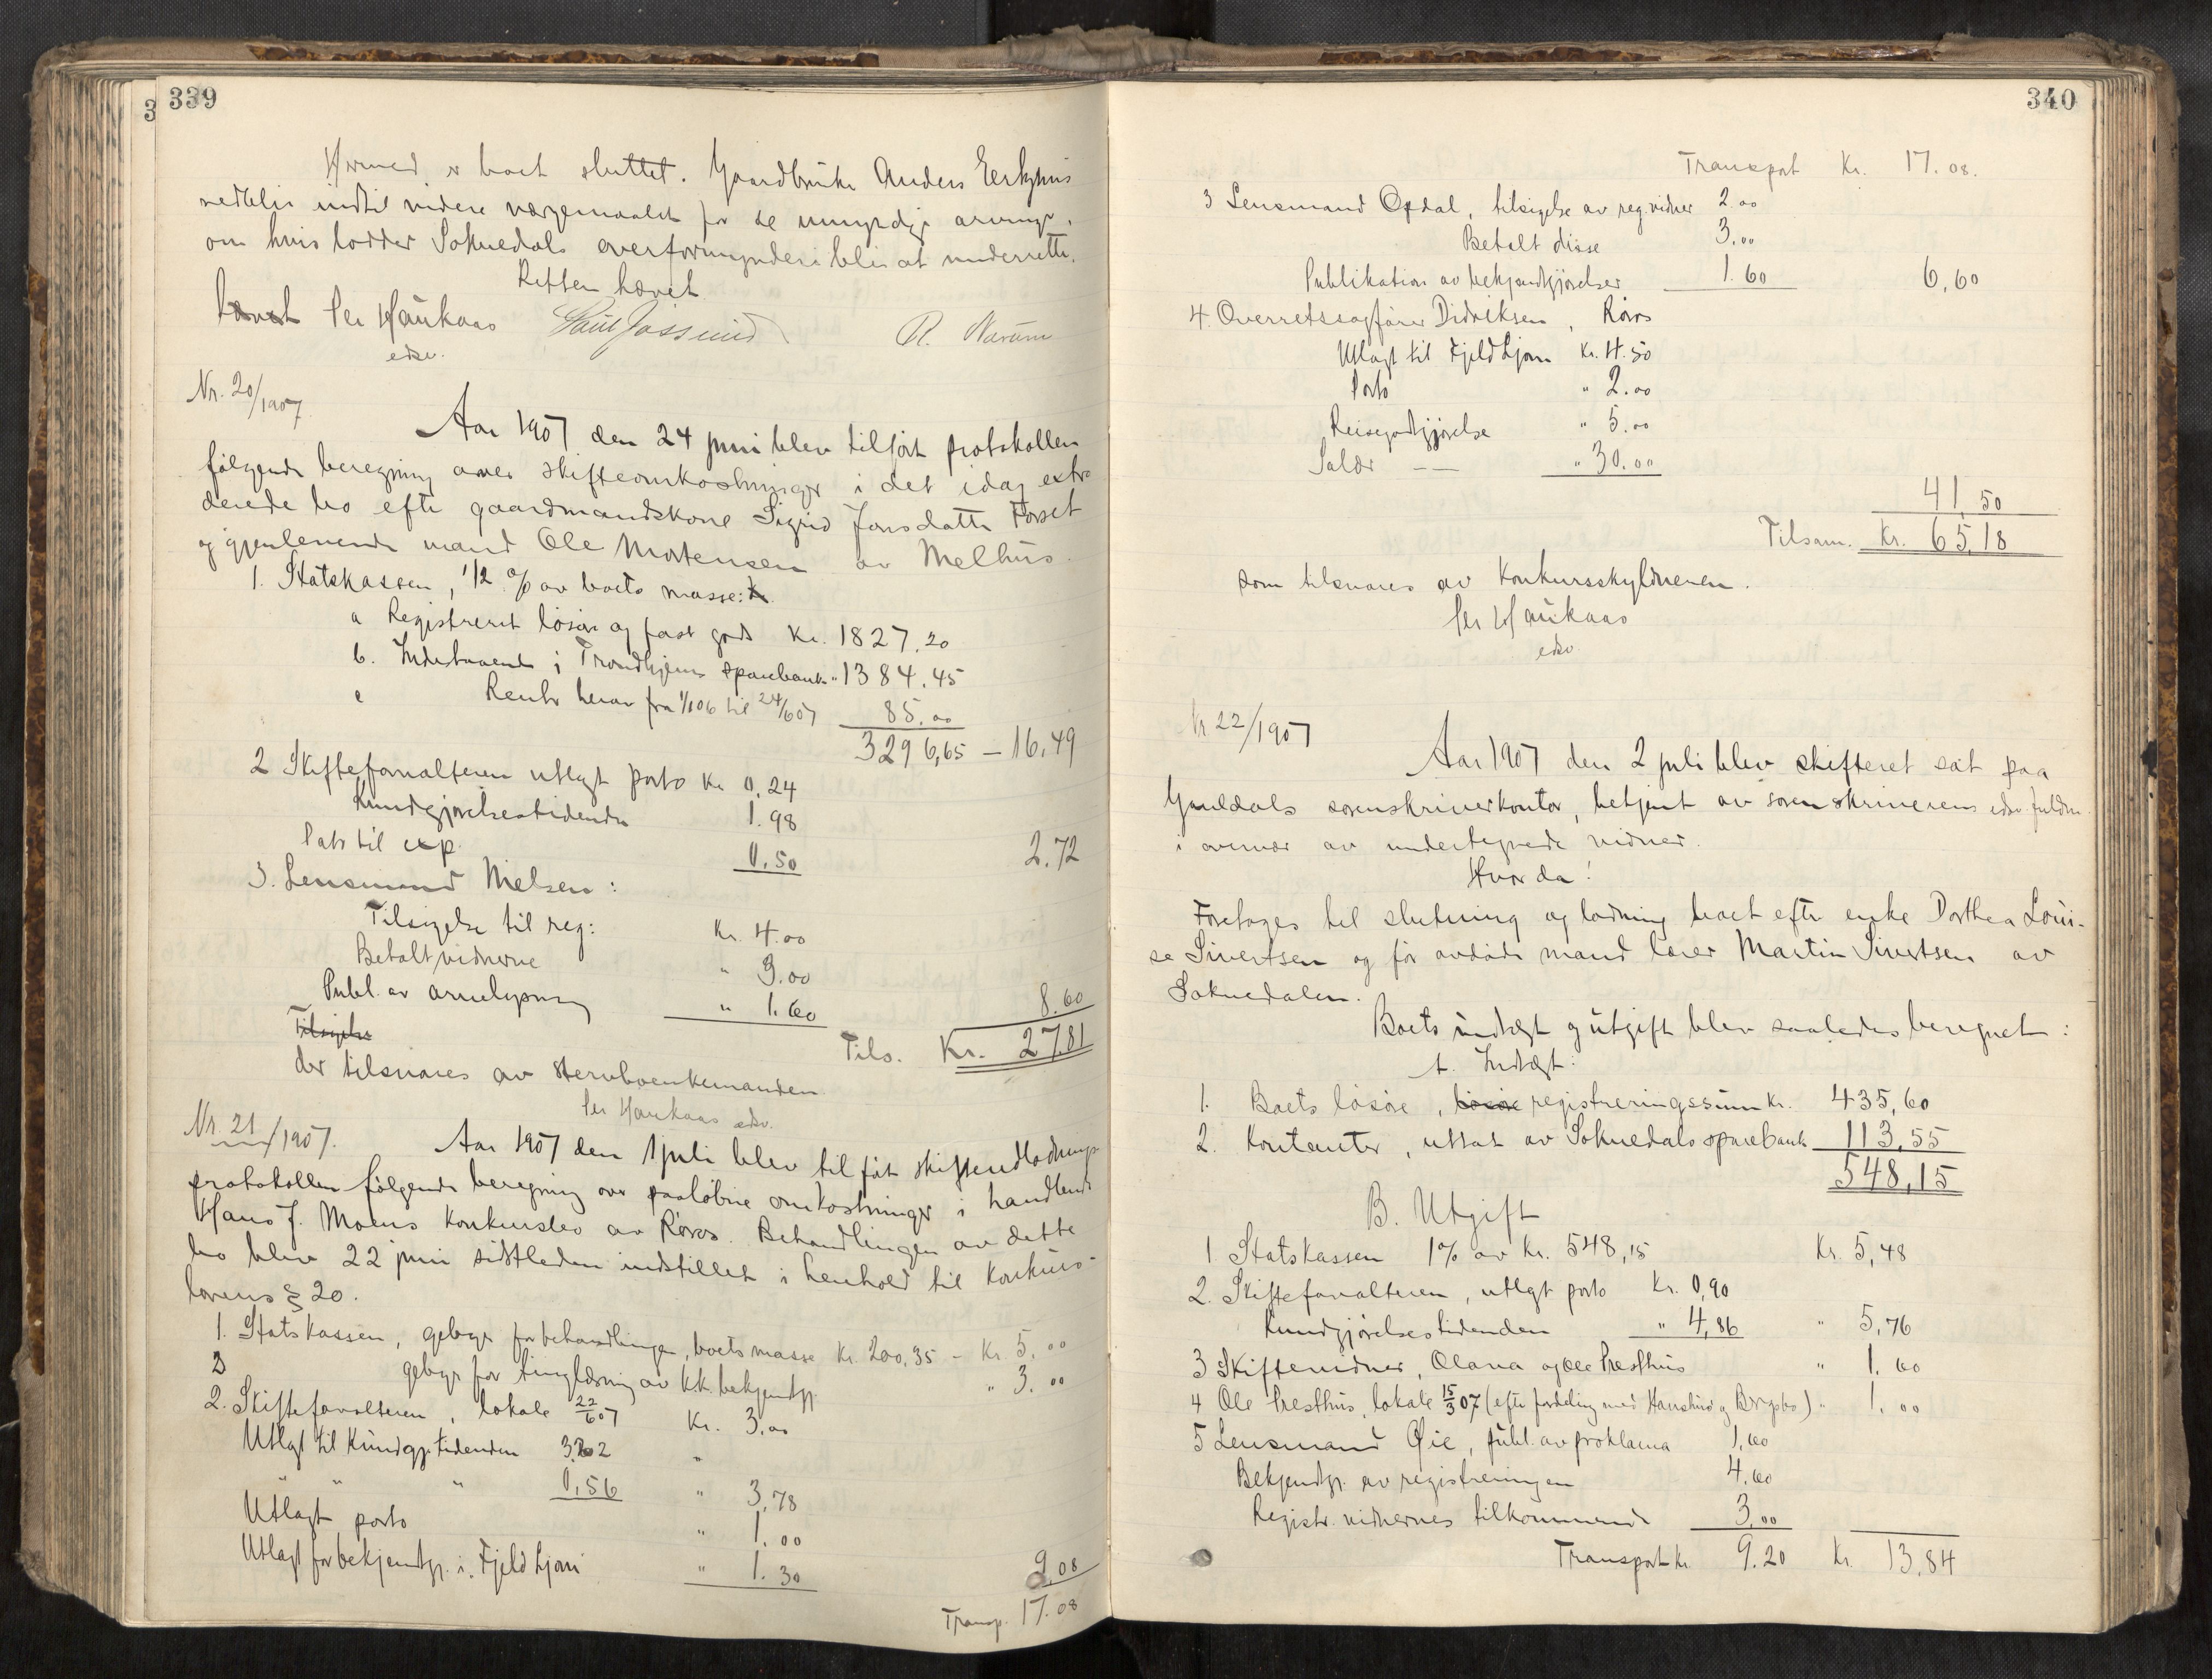 339
Hermed er boet sluttet. Gaardbruker Anders
vedblir indtil videre værgemaalet for de umyndige arvinger,
om hvis lodder Soknedals overformynderi blir at underrette.
Retten hævet
Per Haukaas
edsv.
R. Warum
Nr. 20/1907
Aar 1907 den 24 juni blev tilført protokollen
følgende beregning over skifteomkostninger i det idag extra
derede bo efter gaardmandskone Sigrid Jonsdatter Forset
og gjenlevende mand Ole Mortensen av Melhus.
1. Statskassen, 1/2 % av boets masse:
a Registreret løsøre og fast gods Kr. 1827,20
b. Indestaaende i Trondhjems sparebank " 1384.45
c Renter herav fra 1/1 06 til 24/6 07 85.00
3296,65 – 16,49
2 Skifteforvalteren utlagt porto Kr 0,24
Kundgjørelsestidende 1.98
Pats til exp. 0,50 2.72
3. Lensmand Nielsen:
Tilsigelse til reg: Kr. 4.00
Betalt vidnerne " 3.00
Publ. av arvelysning " 1.60 8.60
Tilsigelse
Tils. Kr. 27,81
der tilsvares av stervboenkemanden
Per Haukaas edsv.
Nr. 21/1907.
Aar 1907 den 1 juli blev tilført skifteutlodnings
protokollen følgende beregning over paaløbne omkostninger i handlende
Hans J. Moens konkursbo av Røros. Behandlingen av dette
bo blev 22 juni sidstleden indstillet i henhold til konkurs-
lovens § 20.
1. Statskassen, gebyr for behandlingen, boets masse Kr. 200,35 – Kr. 5,00
gebyr for tinglæsning av kk. bekjendtgj. " 3.00
2. Skifteforvalteren, lokale 22/6 07 Kr. 3,00
Utlagt til Kundgj. tidenden 3,22 "
" " " 0,56 " 3,78
Utlagt porto " 1.00
Utlagt for bekjendtgj. i Fjeld Ljom " 1.30 9,08
Transp. 17.08
340
Transport Kr. 17.08.
3 Lensmand Opdal, tilsigelse av reg. vidner 2.00
Betalt disse 3,00
Publikation av bekjendtgjørelser 1.60 6,60
4. Overretssagfører Didriksen, Røros
Utlagt til Fjeld Ljom Kr. 4.50
Porto " 2.00
Reisegodtgjørelse " 5.00
Salær — " 30.00
41,50
Tilsam. Kr. 65,18
som tilsvares av Konkursskyldneren.
Per Haukaas
edsv
Nr 22/1907
Aar 1907 den 2 juli blev skifteret sat paa
Gauldals sorenskriverkontor, betjent av sorenskriverens edsv. fuldm.
i overvær av undertegnede vidner.
Hvorda!
Foretages til slutning og lodning boet efter enke Dorthea Loui-
se Sivertsen og før avdøde mand lærer Martin Sivertsen av
Soknedalen.
Boets indtægt og utgift blev saaledes beregnet:
A. Indtægt:
1. Boets løsøre, løsøre registreringssum Kr. 435,60
2. Kontanter, uttat av Soknedals sparebank 113,55
548,15
B. Utgift
1 Statskassen 1% av Kr. 548,15 Kr. 5,48
2. Skifteforvalteren, utlagt porto Kr. 0,90
Kundgjørelsestidenden " 4,86 " 5,76
3 Skiftevidner, Olava og Ole Presthus " 1.60
4 Ole Presthus, lokale 15/3 07 (efter fordeling med) " 1.00
5 Lensmand Øie, publ. av proklama 1,60
Bekjendtgj. av registreringen 4,60
Registr. vidnernes tilkommende 3,00
Transport Kr. 9.20 Kr. 13,84